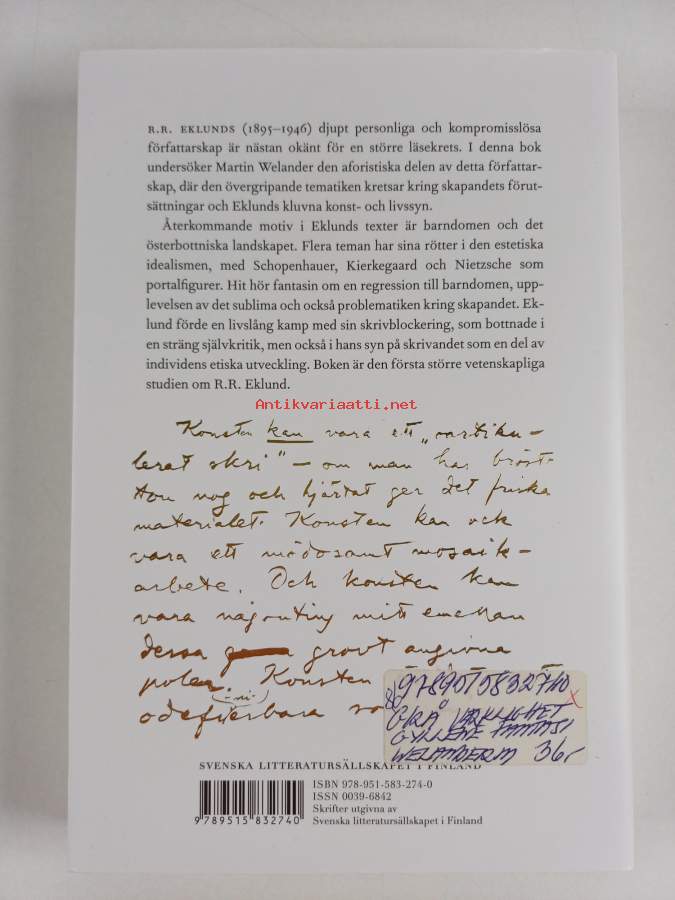 R.R. EKLUNDS (1895–1946) djupt personliga och kompromisslösa
författarskap är nästan okänt för en större läsekrets. I denna bok
undersöker Martin Welander den aforistiska delen av detta författar-
skap, där den övergripande tematiken kretsar kring skapandets förut-
sättningar och Eklunds kluvna konst- och livssyn.
Återkommande motiv i Eklunds texter är barndomen och det
österbottniska landskapet. Flera teman har sina rötter i den estetiska
idealismen, med Schopenhauer, Kierkegaard och Nietzsche som
portalfigurer. Hit hör fantasin om en regression till barndomen, upp-
levelsen av det sublima och också problematiken kring skapandet. Ek-
lund förde en livslång kamp med sin skrivblockering, som bottnade i
en sträng självkritik, men också i hans syn på skrivandet som en del av
individens etiska utveckling. Boken är den första större vetenskapliga
studien om R.R. Eklund.
Antikvariaatti.net
Konsten kan vara ett „oartiku-
lerat skri" – om man har bröst-
ton nog och hjärtat ger det friska
materialet. Konsten kan ock
vara ett mödosamt mosaik-
arbete. Och konsten kan
vara någonting mitt emellan
dessa grovt angivna
poler. Konsten
-ni-
odefierbara
9789515832740 x
GRÅ VERKLIGHET
GYLLENE FANTASI
WELANDER M 36,-
SVENSKA LITTERATURSÄLLSKAPET I FINLAND
ISBN 978-951-583-274-0
ISSN 0039-6842
Skrifter utgivna av
Svenska litteratursällskapet i Finland
9 789515 832740